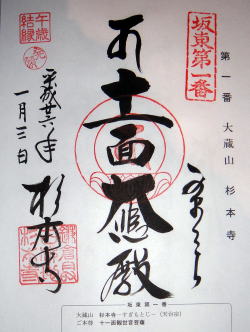 坂東第一番
第一番 大蔵山 杉本寺
かまくら
十一面大悲殿
午歳
結縁
平成廿六年
一月三日
杉本寺
坂東第一番
大蔵山 杉本寺―すぎもとじ―(天台宗)
ご本尊 十一面観世音菩薩